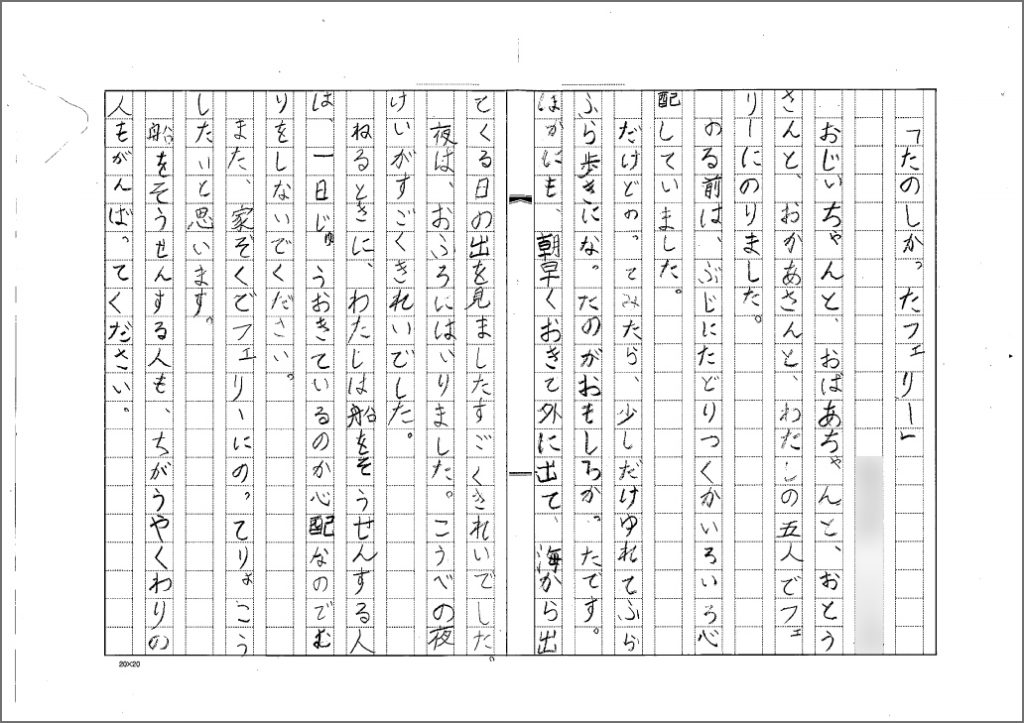 「たのしかったフェリー」
おじいちゃんと、おばあちゃんと、おとう
さんと、おかあさんと、わたしの五人でフェ
リーにのりました。
のる前は、ぶじにたどりつくかいろいろ心
配していました。
だけどのってみたら、少しだけゆれてふら
ふら歩きになったのがおもしろかったです。
ほかにも、朝早くおきて外に出て、海から出
てくる日の出を見ましたすごくきれいでした。
夜は、おふろにはいりました。こうべの夜
けいがすごくきれいでした。
ねるときに、わたしは船をそうせんする人
は、一日じゅうおきているのか心配なのでむ
りをしないでください。
また、家ぞくでフェリーにのってりょこう
したいと思います。
船をそうせんする人も、ちがうやくわりの
人もがんばってください。
20×20